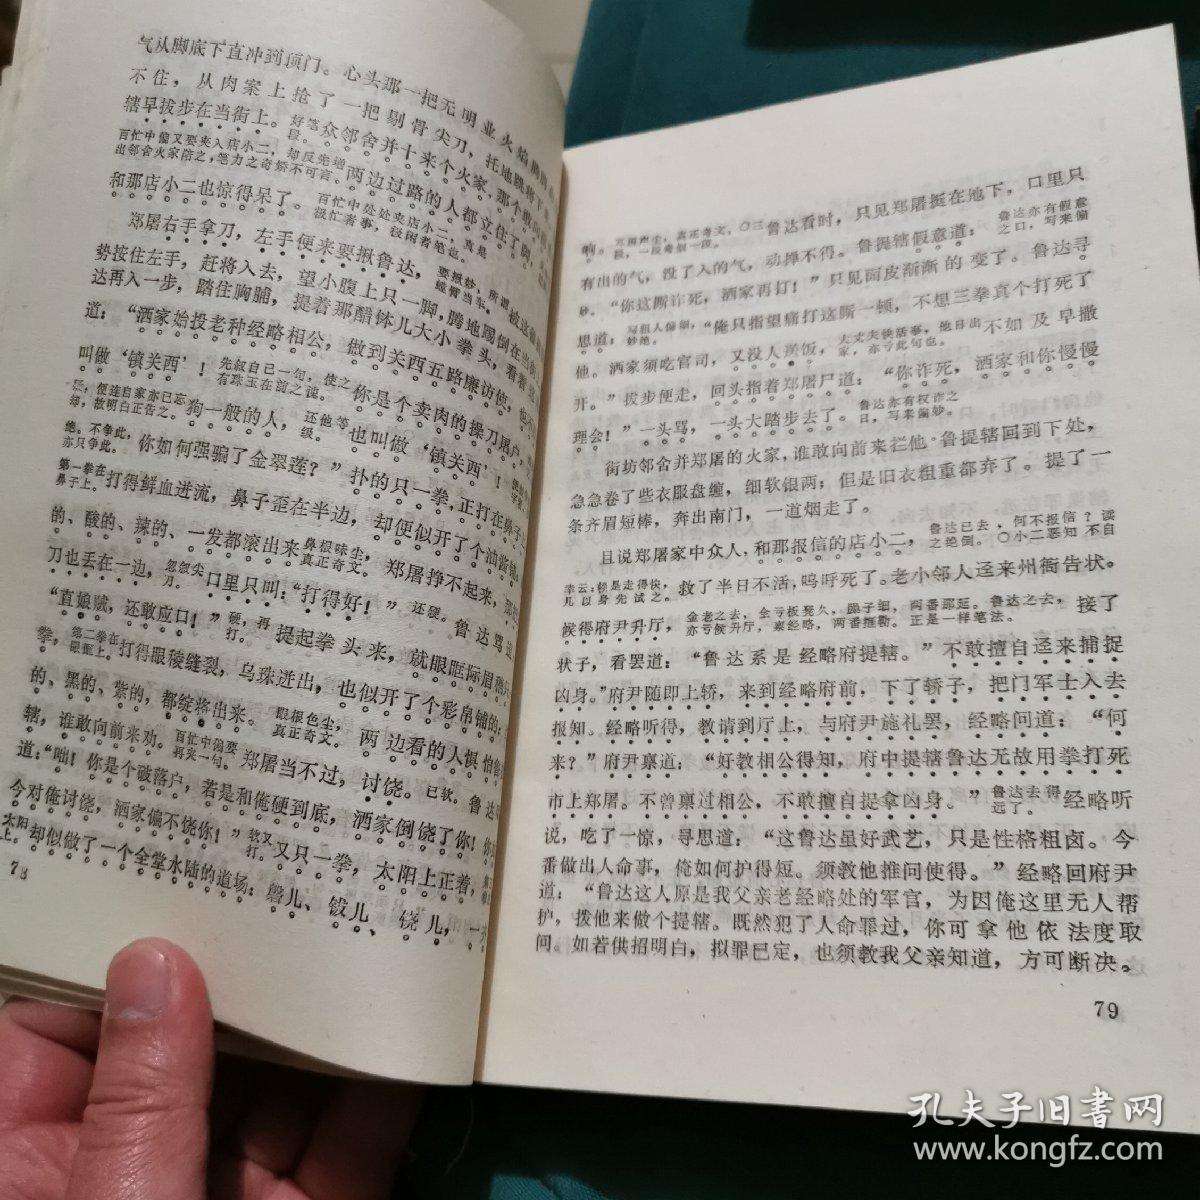 气从脚底下直冲到顶门。心头那一把无明业火焰腾
不住，从肉案上抢了一把剔骨尖刀，托地跳将下
辖早拔步在当街上。好笔段。众邻舍并十来个火家，那个敢
百忙中偏又要夹入店小二，却反先增出邻舍火家陪之，笔力之奇矫不可言。两边过路的人都立住了脚，
和那店小二也惊得呆了。百忙中处处夹店小二，真是极忙者事，极闲者笔也。
郑屠右手拿刀，左手便来要揪鲁达，要揪妙，所谓螳臂当车。被这
势按住左手，赶将入去，望小腹上只一脚，腾地踢倒在
达再入一步，踏住胸脯，提着那醋钵儿大小拳头，看着
道：“洒家始投老种经略相公，做到关西五路廉访使，也
叫做‘镇关西’！先叙自己一句，使之有珠玉在前之愧。你是个卖肉的操刀屠户，
便连自家亦已忘却，故明白正告之。狗一般的人，还他等级。也叫做‘镇关西’！
绝，不争此，亦只争此。你如何强骗了金翠莲？”扑的只一拳，正打在鼻子
第一拳在鼻子上。打得鲜血迸流，鼻子歪在半边，却便似开了个油酱
的、酸的、辣的、一发都滚出来鼻根味尘，真正奇文。郑屠挣不起来，那
刀也丢在一边，忽忽尖刀。口里只叫：“打得好！”还硬。鲁达骂
“直娘贼，还敢应口！”硬，再打。提起拳头来，就眼眶际眉梢
拳，第二拳在眼眶上。打得眼棱缝裂，乌珠迸出，也似开了个彩帛铺的：
的、黑的、紫的，都绽将出来。眼根色尘，真正奇文。两边看的人惧怕鲁
辖，谁敢向前来劝。百忙中偏要再夹一句。郑屠当不过，讨饶。已软。鲁达
道：“咄！你是个破落户，若是和俺硬到底，洒家倒饶了你！你
今对俺讨饶，洒家偏不饶你！”软又打。又只一拳，太阳上正着，
太阳上。却似做了一个全堂水陆的道场：磬儿、钹儿、铙儿，一
78
响。耳根声尘，真正奇文，〇三段，一段奇似一段。鲁达看时，只见郑屠挺在地下，口里只
有出的气，没了入的气，动掸不得。鲁提辖假意道：鲁达亦有假意之口，写来偏
妙。“你这厮诈死，洒家再打！”只见面皮渐渐的变了。鲁达寻
思道：写粗人偏细，妙绝。“俺只指望痛打这厮一顿，不想三拳真个打死了
他。洒家须吃官司，又没人送饭，大丈夫快活事，他日出家，亦亏此句也。不如及早撒
开。”拔步便走，回头指着郑屠尸道：“你诈死，洒家和你慢慢
理会！”一头骂，一头大踏步去了。鲁达亦有权诈之日，写来偏妙。
街坊邻舍并郑屠的火家，谁敢向前来拦他。鲁提辖回到下处，
急急卷了些衣服盘缠，细软银两；但是旧衣粗重都弃了。提了一
条齐眉短棒，奔出南门，一道烟走了。
且说郑屠家中众人，和那报信的店小二，鲁达已去，何不报信？读之绝倒。〇小二恶知不自
幸云：你是走得快，几以身先试之。救了半日不活，呜呼死了。老小邻人迳来州衙告状。
候得府尹升厅，金老之去，金亏板凳久，臊子细，两番那延。鲁达之去，亦亏候升厅，禀经略，两番推斯。正是一样笔法。接了
状子，看罢道：“鲁达系是经略府提辖。”不敢擅自迳来捕捉
凶身。”府尹随即上轿，来到经略府前，下了轿子，把门军士入去
报知。经略听得，教请到厅上，与府尹施礼罢，经略问道：“何
来？”府尹禀道：“好教相公得知，府中提辖鲁达无故用拳打死
市上郑屠。不曾禀过相公，不敢擅自捉拿凶身。”鲁达去得远了。经略听
说，吃了一惊，寻思道：“这鲁达虽好武艺，只是性格粗卤。今
番做出人命事，俺如何护得短。须教他推问使得。”经略回府尹
道：“鲁达这人原是我父亲老经略处的军官，为因俺这里无人帮
护，拨他来做个提辖。既然犯了人命罪过，你可拿他依法度取
问。如若供招明白，拟罪已定，也须教我父亲知道，方可断决。
79
孔夫子旧书网
www.kongfz.com